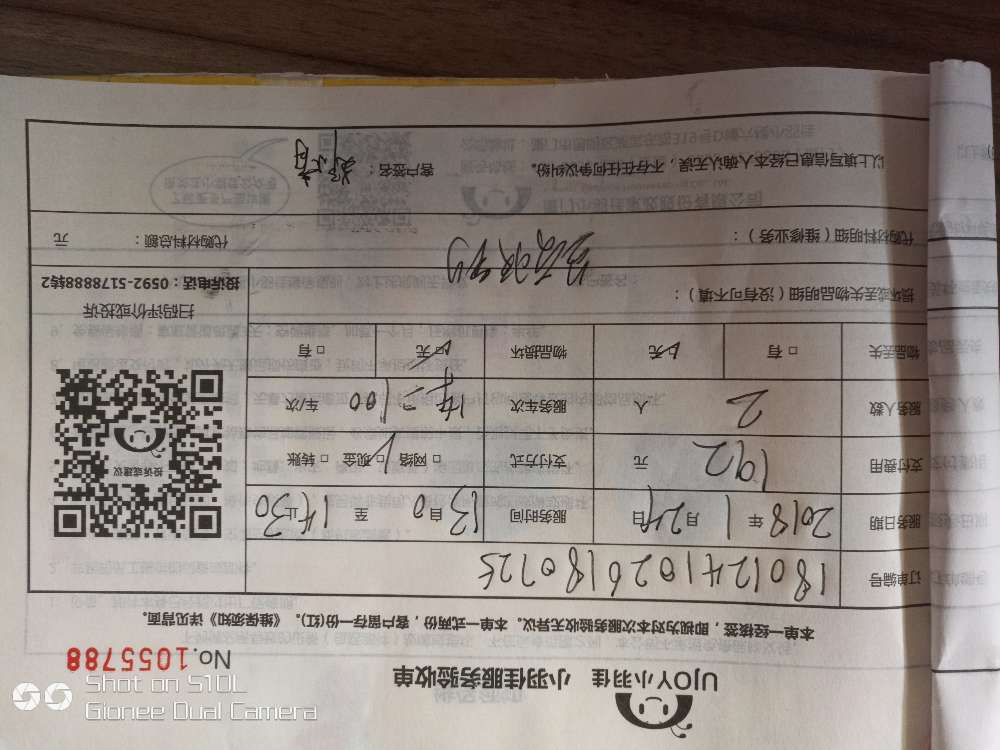 UJOY小羽佳 小羽佳服务验收单
No.1055788
本单一经接签，即视为对本次服务验收无异议。本单一式两份，客户留存一份(红)。《维保须知》详见背面。
订单编号 1801241026180725
服务日期 2018年1月24日 服务时间 13:00 自 至
支付费用 192 元 支付方式 □网络 □现金 □转账
服务人数 2 人 服务车次 车/次
物品丢失 □有 □无 物品损坏 □有 □无
损坏或丢失物品明细（没有可不填）：
投诉或建议
扫码评价或投诉
投诉电话：0592-5178888转2
代购材料明细（维修业务）： 代购材料总额： 元
以上填写信息已经本人确认无误，不存在任何争议纠纷。 客户签名：
Shot on S10L
Gionee Dual Camera